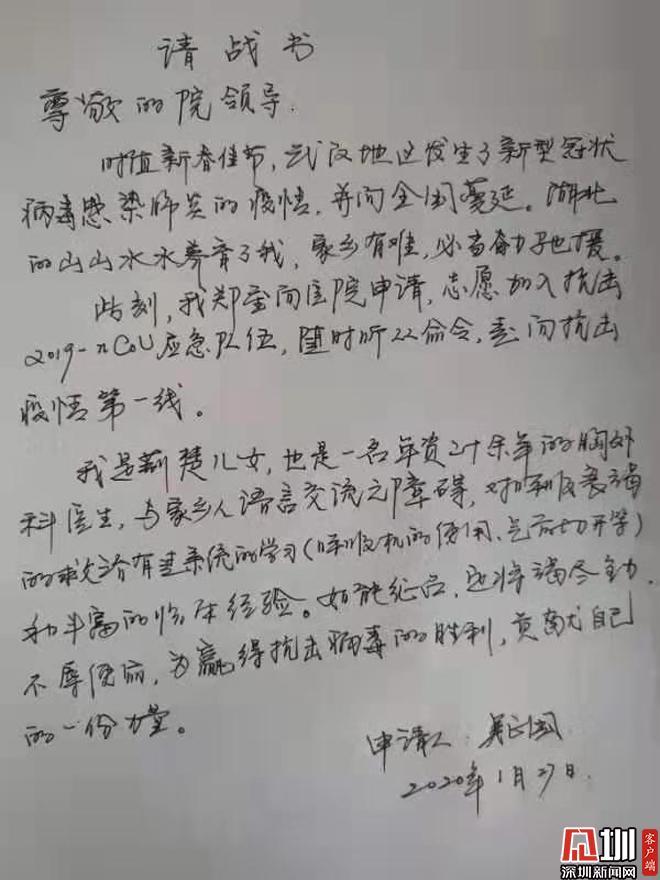 请战书
尊敬的院领导.
时值新春佳节,武汉地区发生了新型冠状
病毒感染肺炎的疫情,并向全国蔓延。湖北
的山山水水养育了我,家乡有难,必当奋力驰援。
此刻,我郑重向医院申请,志愿加入抗击
2019-nCoV应急队伍,随时听从命令,赴向抗击
疫情第一线。
我是荆楚儿女,也是一名年资二十余年的胸外
科医生,与家乡人语言交流无障碍,对呼吸衰竭
的救治有过系统的学习(呼吸机的使用、气管切开等)
和丰富的临床经验。如能征召,必将竭尽全力,
不辱使命,为赢得抗击病毒的胜利,贡献自己
的一份力量。
申请人:吴正国
2020年1月27日.
圳
深圳新闻网
客户端